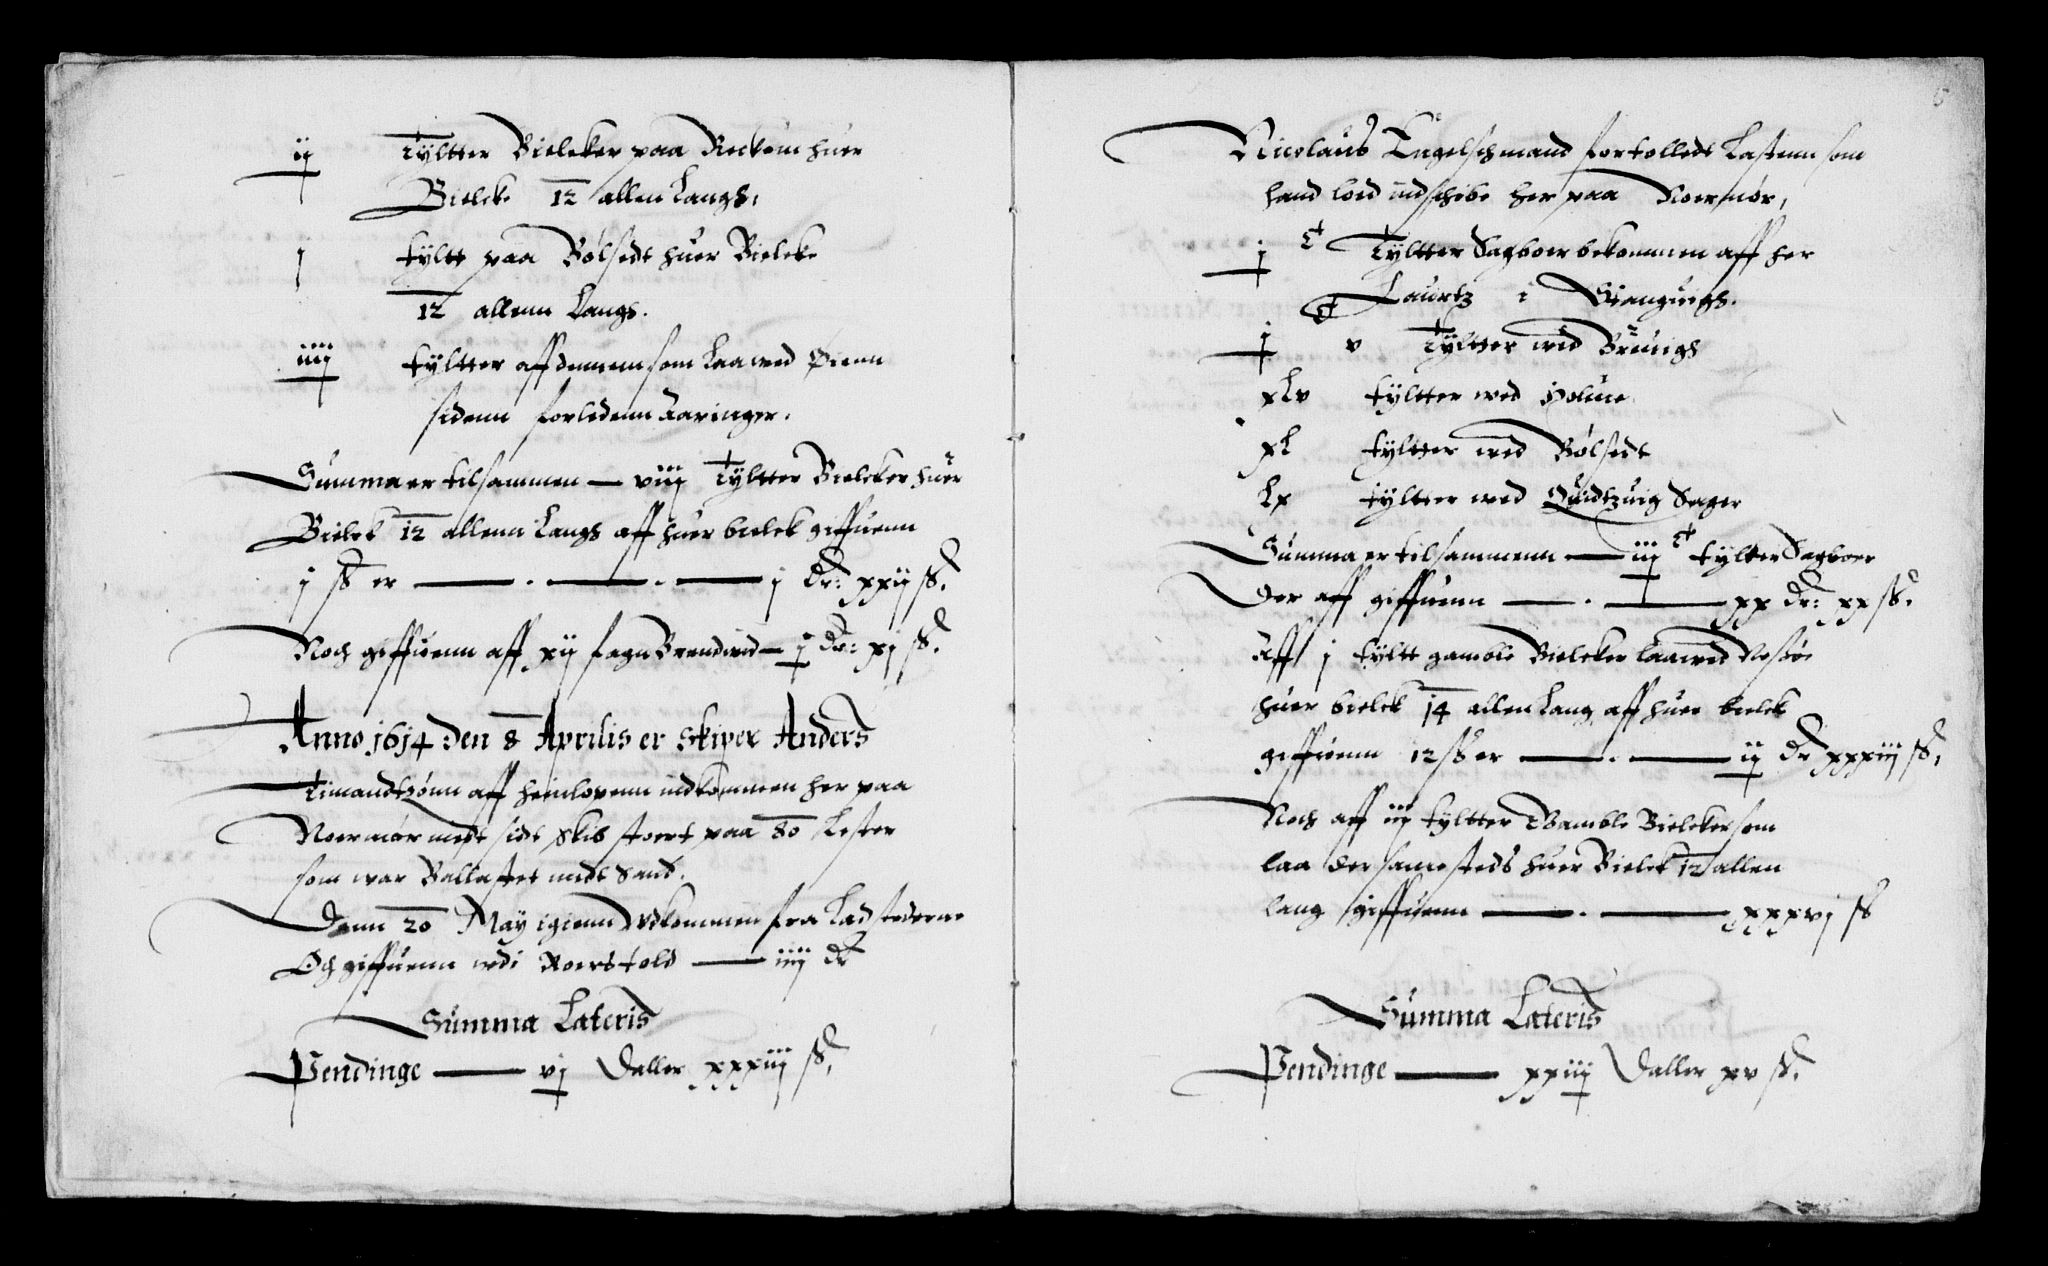 ij Tyltter Bielcker paa Reckom huer
Bielcke 12 allen Langs,
j tyltt paa Bølsedt huer Bielcke
12 allenn Langs.
iiij tyltter aff dennem som laa wed Øienn
sidenn forledenn Aaringer.
Summa er tilsammen — viij Tyltter Bielcker huer
Bielck 12 allenn Langs aff huer bielck giffuenn
j ß er — . — . — j dr: xxij ß.
Noch giffuenn aff xij fagn Brendwid — j dr: xj ß.
Anno 1614 den 8 Aprilis er Skiper Anders
Timandtzønn aff heinlopenn indkommen her paa
Noermør medt sidt Skib stoert paa 80 Lester
som war Ballastet medt Sand.
Denn 20 May igienn Vdkommen fra Ladstederne
Och giffuenn wdi Roerstold — iiij dr
Summa Lateris
Pendinge — vj Daller xxxiij ß.
Nicolaus Engelschmand fortolledt Lastenn som
hand loed indschibe her paa Noermør,
j C Tyltter Sagboer bekommen aff her
Laurtz i Stanguigs.
j C v Tyltter wid Breuigs
xLv tyltter wed Holme
xL tyltter wed Bølsedt
Lx tyltter wed Quidtzuig Sager
Summa er tilsammenn — iij C tylter Sagboer
Der aff giffuenn — . — xx dr: xx ß.
Aff j tyltt gamble Bielcker laa wed
huer bielck 14 allen Lang aff huer bielck
giffuenn 12 ß er — . — ij dr xxxiij ß.
Noch aff iij tyltter Gamble Bielcker som
laa der samesteds huer Bielck 12 allen
lang giffuenn — . — xxxvj ß
Summa Lateris
Pendinge — xxiij Daller xv ß.